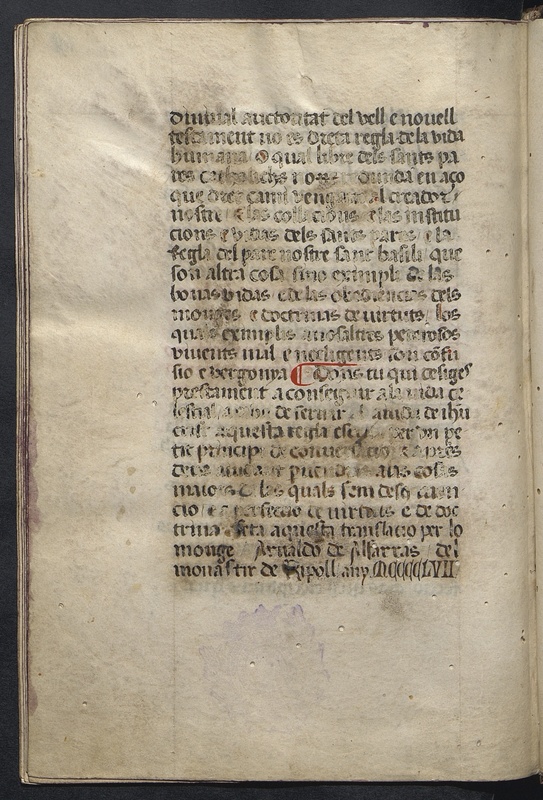 diuinal auctoritat del vell e nouell
testament no es dreta regla dela vida
humana O qual libre dels sants pa
res catholichs no en aço
que dret cami vengam al creador
nostre E las collacions e las institu
cions e vidas dels sants pares e la
Regla del pare nostre sant basili que
son altra cosa sino exempli de las
bonas vidas e de las obediencias dels
monges e doctrinas de virtuts los
quals exemplis a nosaltres peresosos
viuents mal e negligents son cõfu
sio e vergonya Donchs tu qui desiges
prestament a conseguir a la vida ce
lestial de seruir aiuda de ihu
crist aquesta regla per vn pe
tit principi de conuersacio E apres
deus aiudant puendras a las cosas
maiors De las quals fem desus men
cio e a perfeccio de virtuts e de doc
trina feta aquesta translacio per lo
monge Arnaldo de Alfarras del
monastir de Ripoll any MCCCCLVII